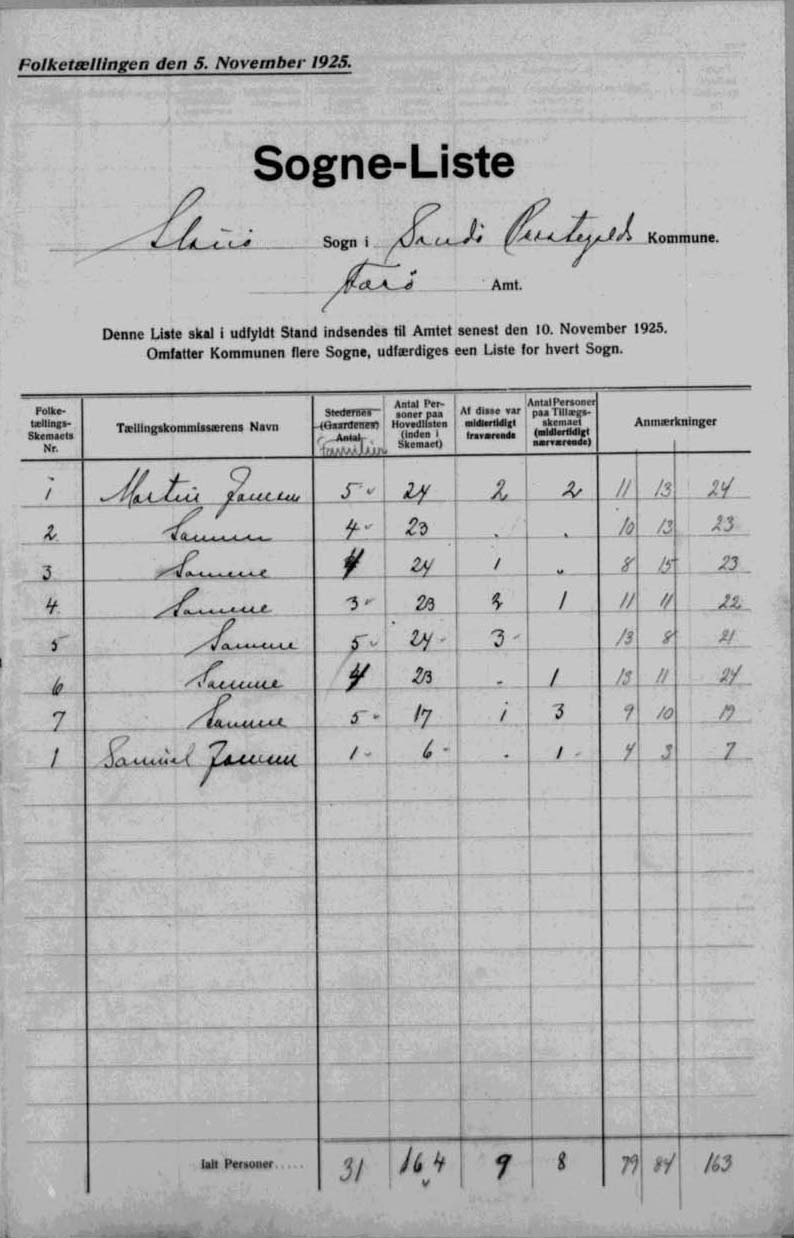 Folketællingen den 5. November 1925.
Sogne-Liste
Sogn i Sandø Præstegjelds Kommune.
Færø Amt.
Denne Liste skal i udfyldt Stand indsendes til Amtet senest den 10. November 1925.
Omfatter Kommunen flere Sogne, udfærdiges een Liste for hvert Sogn.
Folke-
tællings-
Skemaets
Nr.
Tællingskommissærens Navn
Stedernes
(Gaardenes)
Antal
Familier
Antal Per-
soner paa
Hovedlisten
(inden i
Skemaet)
Af disse var
midlertidigt
fraværende
Antal Personer
paa Tillægs-
skemaet
(midlertidigt
nærværende)
Anmærkninger
1 Martin Joensen 5 24 2 2 11 13 24
2 Samme 4 23 . . 10 13 23
3 Samme 4 24 1 " 8 15 23
4 Samme 3 23 2 1 11 11 22
5 Samme 5 24 3 13 8 21
6 Samme 4 23 - 1 13 11 24
7 Samme 5 17 1 3 9 10 19
1 Samuel Joensen 1 6 . 1 4 3 7
Ialt Personer..... 31 164 9 8 79 84 163